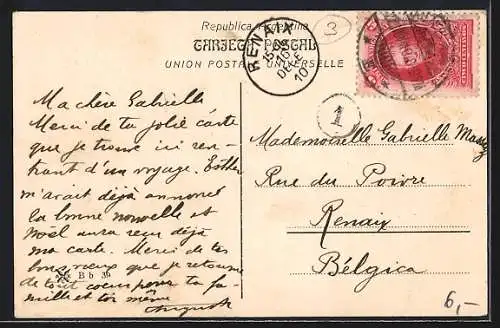 Republica Argentina
TARJETA POSTAL
UNION POSTALE UNIVERSELLE
RENAIX
15-16
16
DEC
10
3
1
Ma chère Gabrielle
Merci de ta jolie carte
que je trouve ici ren-
trant d'un voyage. Esther
m'avait déjà annoncé
la bonne nouvelle et
Noël aura reçu déjà
ma carte. Merci de tes
bons vœux que je retourne
de tout coeur pour ta fa-
mille et toi même
August
B b 39
Mademoiselle Gabrielle Massez
Rue du Poivre
Renaix
Bélgica
6,-